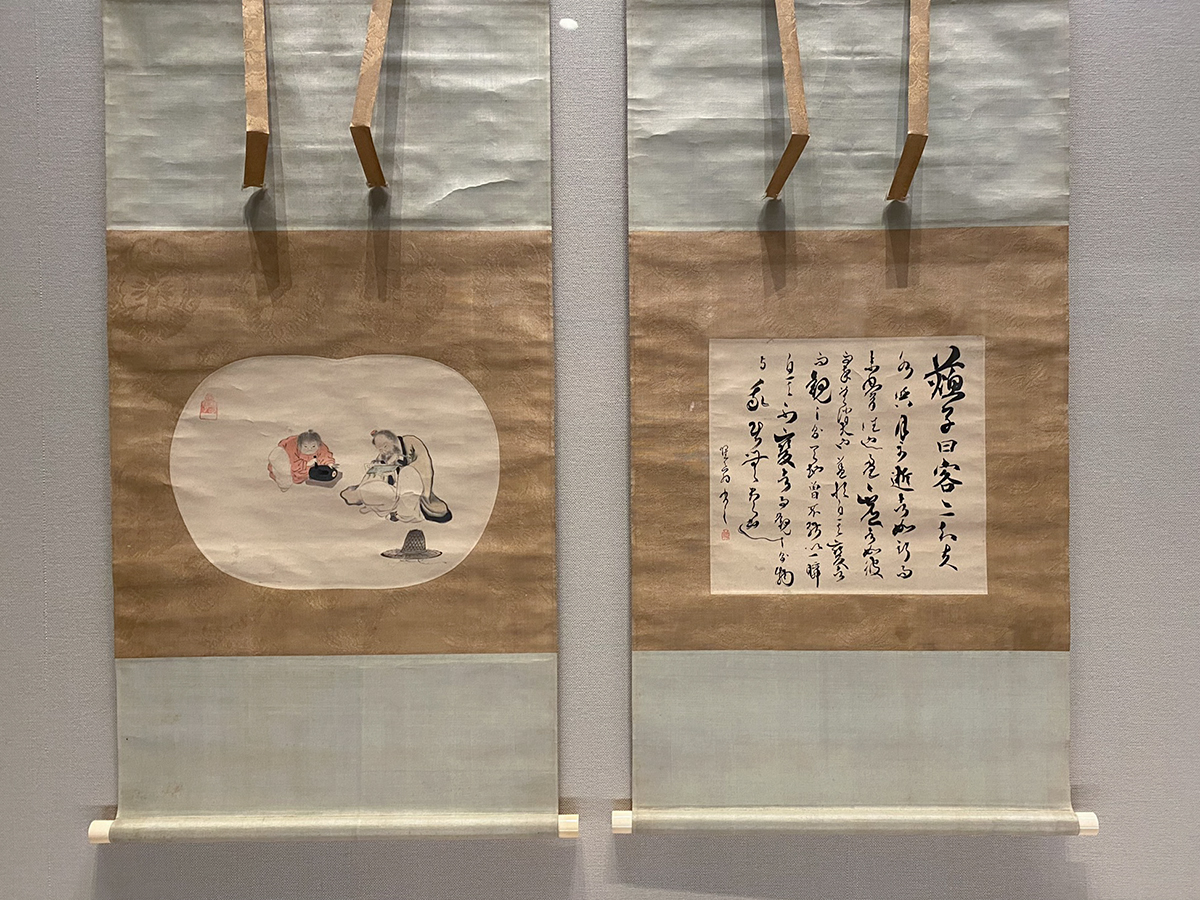 蘓子曰客亦知夫
水與月乎逝者如斯而
未嘗往也盈虚者如彼
而卒莫消長也盖將自其變者
而觀之則天地曾不能以一瞬
自其不變者而觀之則物
與我皆無盡也